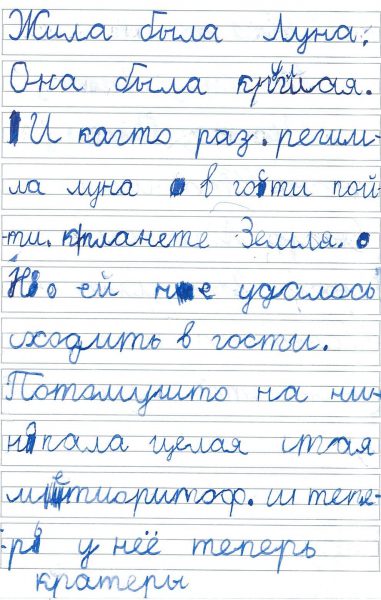 Жила была Луна.
Она была круглая.
И както раз. регим-
ла луна в гости пой-
ти. к планете Земля.
Но ей не удалось
сходить в гости.
Потомушто на ни-
нопала целая стая
метиоритоф. и тепе-
рь у неё теперь
кратеры